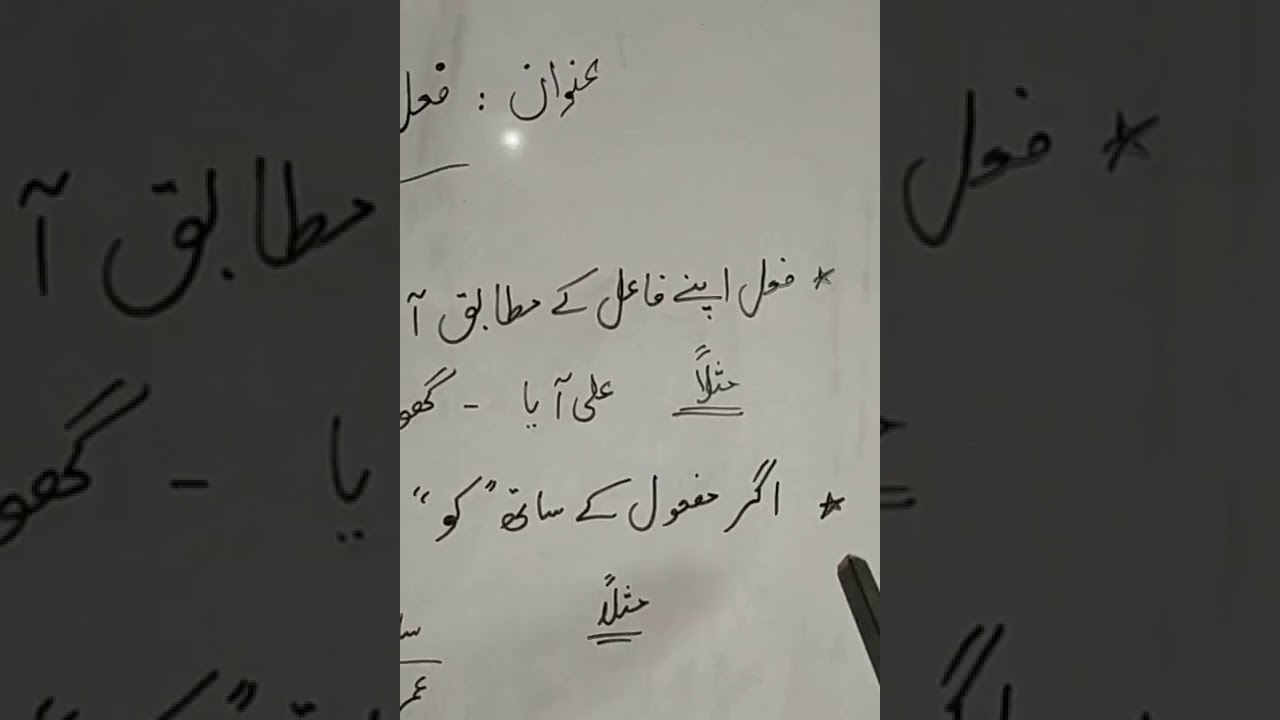 عنوان : فعل
* فعل اپنے فاعل کے مطابق آ
مثلاً علی آیا - گھو
* اگر مفعول کے ساتھ "کو"
مثلاً
سا
عمر